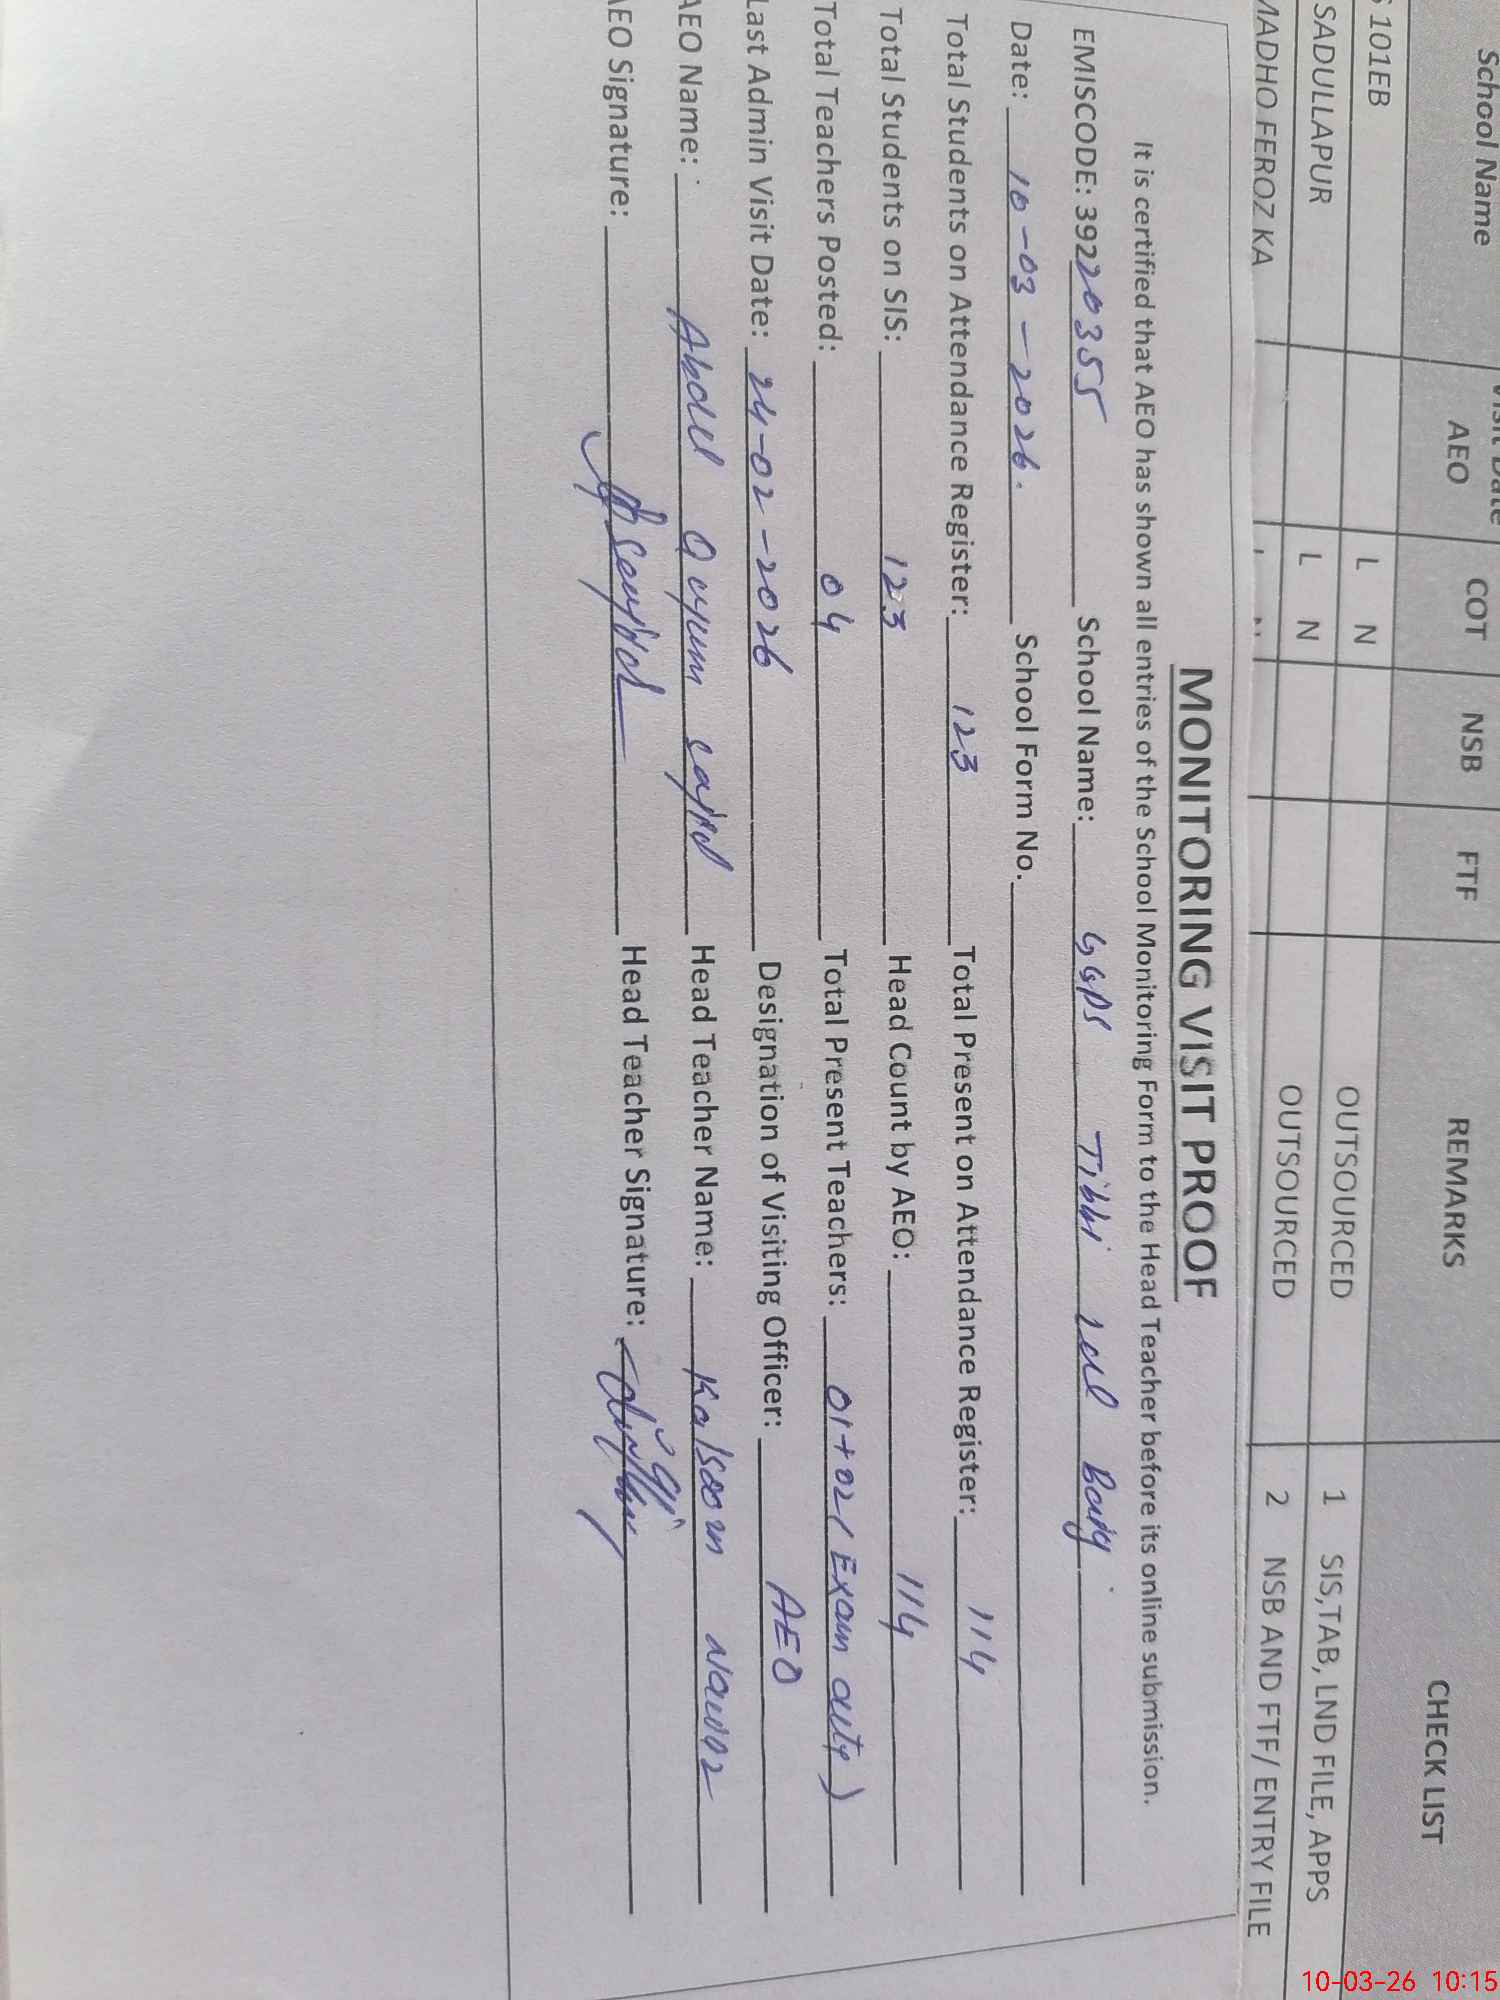 School Name Visit Date AEO COT NSB FTF REMARKS CHECK LIST
101EB L N OUTSOURCED 1 SIS,TAB, LND FILE, APPS
SADULLAPUR L N OUTSOURCED 2 NSB AND FTF/ ENTRY FILE
MADHO FEROZ KA
MONITORING VISIT PROOF
It is certified that AEO has shown all entries of the School Monitoring Form to the Head Teacher before its online submission.
EMISCODE: 39220355 School Name: GGPS Tibbi Lal Baig
Date: 10-03-2026. School Form No.
Total Students on Attendance Register: 123 Total Present on Attendance Register: 114
Total Students on SIS: 123 Head Count by AEO: 114
Total Teachers Posted: 04 Total Present Teachers: 01+02(Exam duty)
Last Admin Visit Date: 24-02-2026 Designation of Visiting Officer: AEO
AEO Name: Abdul Qayum Sajid Head Teacher Name: Kalsoom Nawaz
AEO Signature: Head Teacher Signature:
10-03-26 10:15